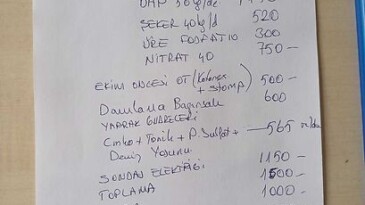 DAP 50 kg/de
ŞEKER 40kg/d 520
ÜRE FOSFAT 10 300
NİTRAT 40 750-
EKİM ÖNCESİ OT (Kelenex + Stomp) 500-
Damlama Bağırsak 600
YAPRAK GÜBRELERİ
Cinko + Tonik + P. Sülfat + 565
Deniz Yosunu
SONDAJ ELEKTİĞİ 1150-
TOPLAMA 1500-
1000-